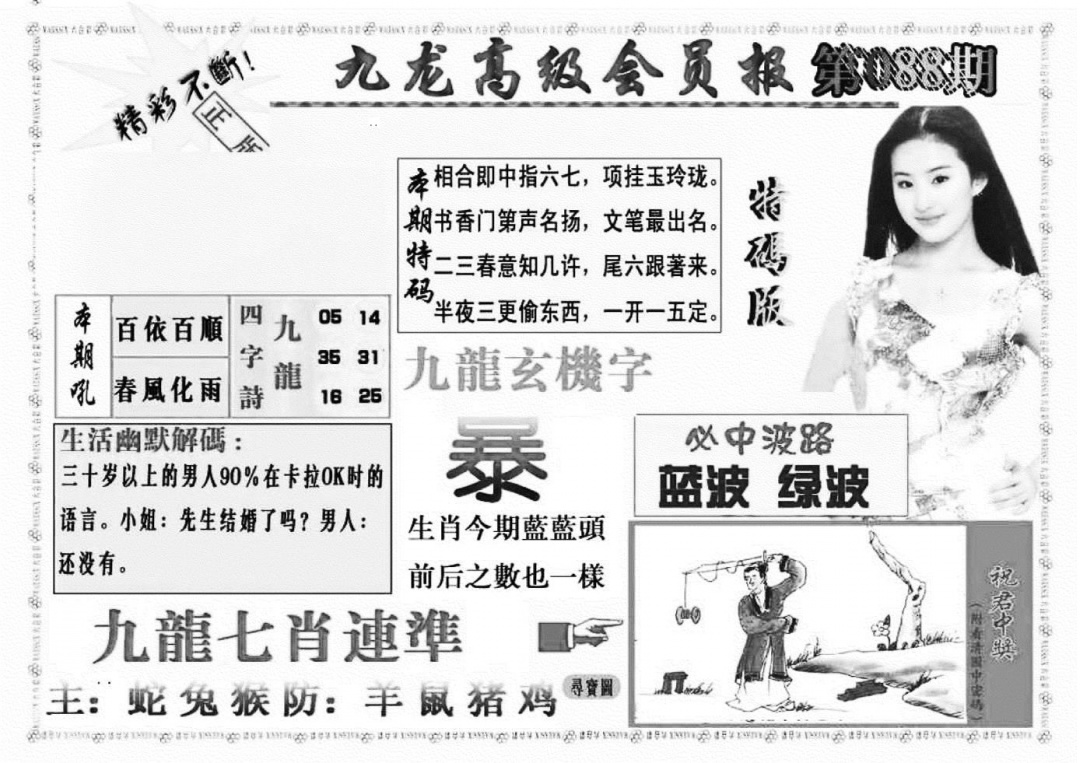 精彩不斷!
正版
九龙高级会员报
第088期
本期特码
相合即中指六七，项挂玉玲珑。
书香门第声名扬，文笔最出名。
二三春意知几许，尾六跟著来。
半夜三更偷东西，一开一五定。
特碼版
本期吼
百依百順
春風化雨
四字詩
九龍
05 14
35 31
16 25
九龍玄機字
暴
生肖今期藍藍頭
前后之數也一樣
生活幽默解碼：
三十岁以上的男人90%在卡拉OK时的
语言。小姐：先生结婚了吗？男人：
还没有。
必中波路
蓝波 绿波
九龍七肖連準
主：蛇兔猴防：羊鼠猪鸡
尋寶圖
祝君中奖
（附看清圖中密碼）